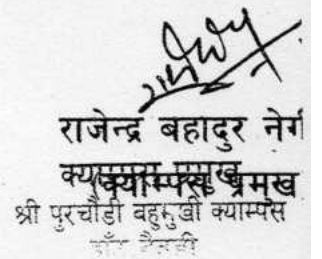 राजेन्द्र बहादुर नेगी
क्याम्पस प्रमुख
क्याम्पस प्रमुख
श्री पुरचौडी बहुमुखी क्याम्पस